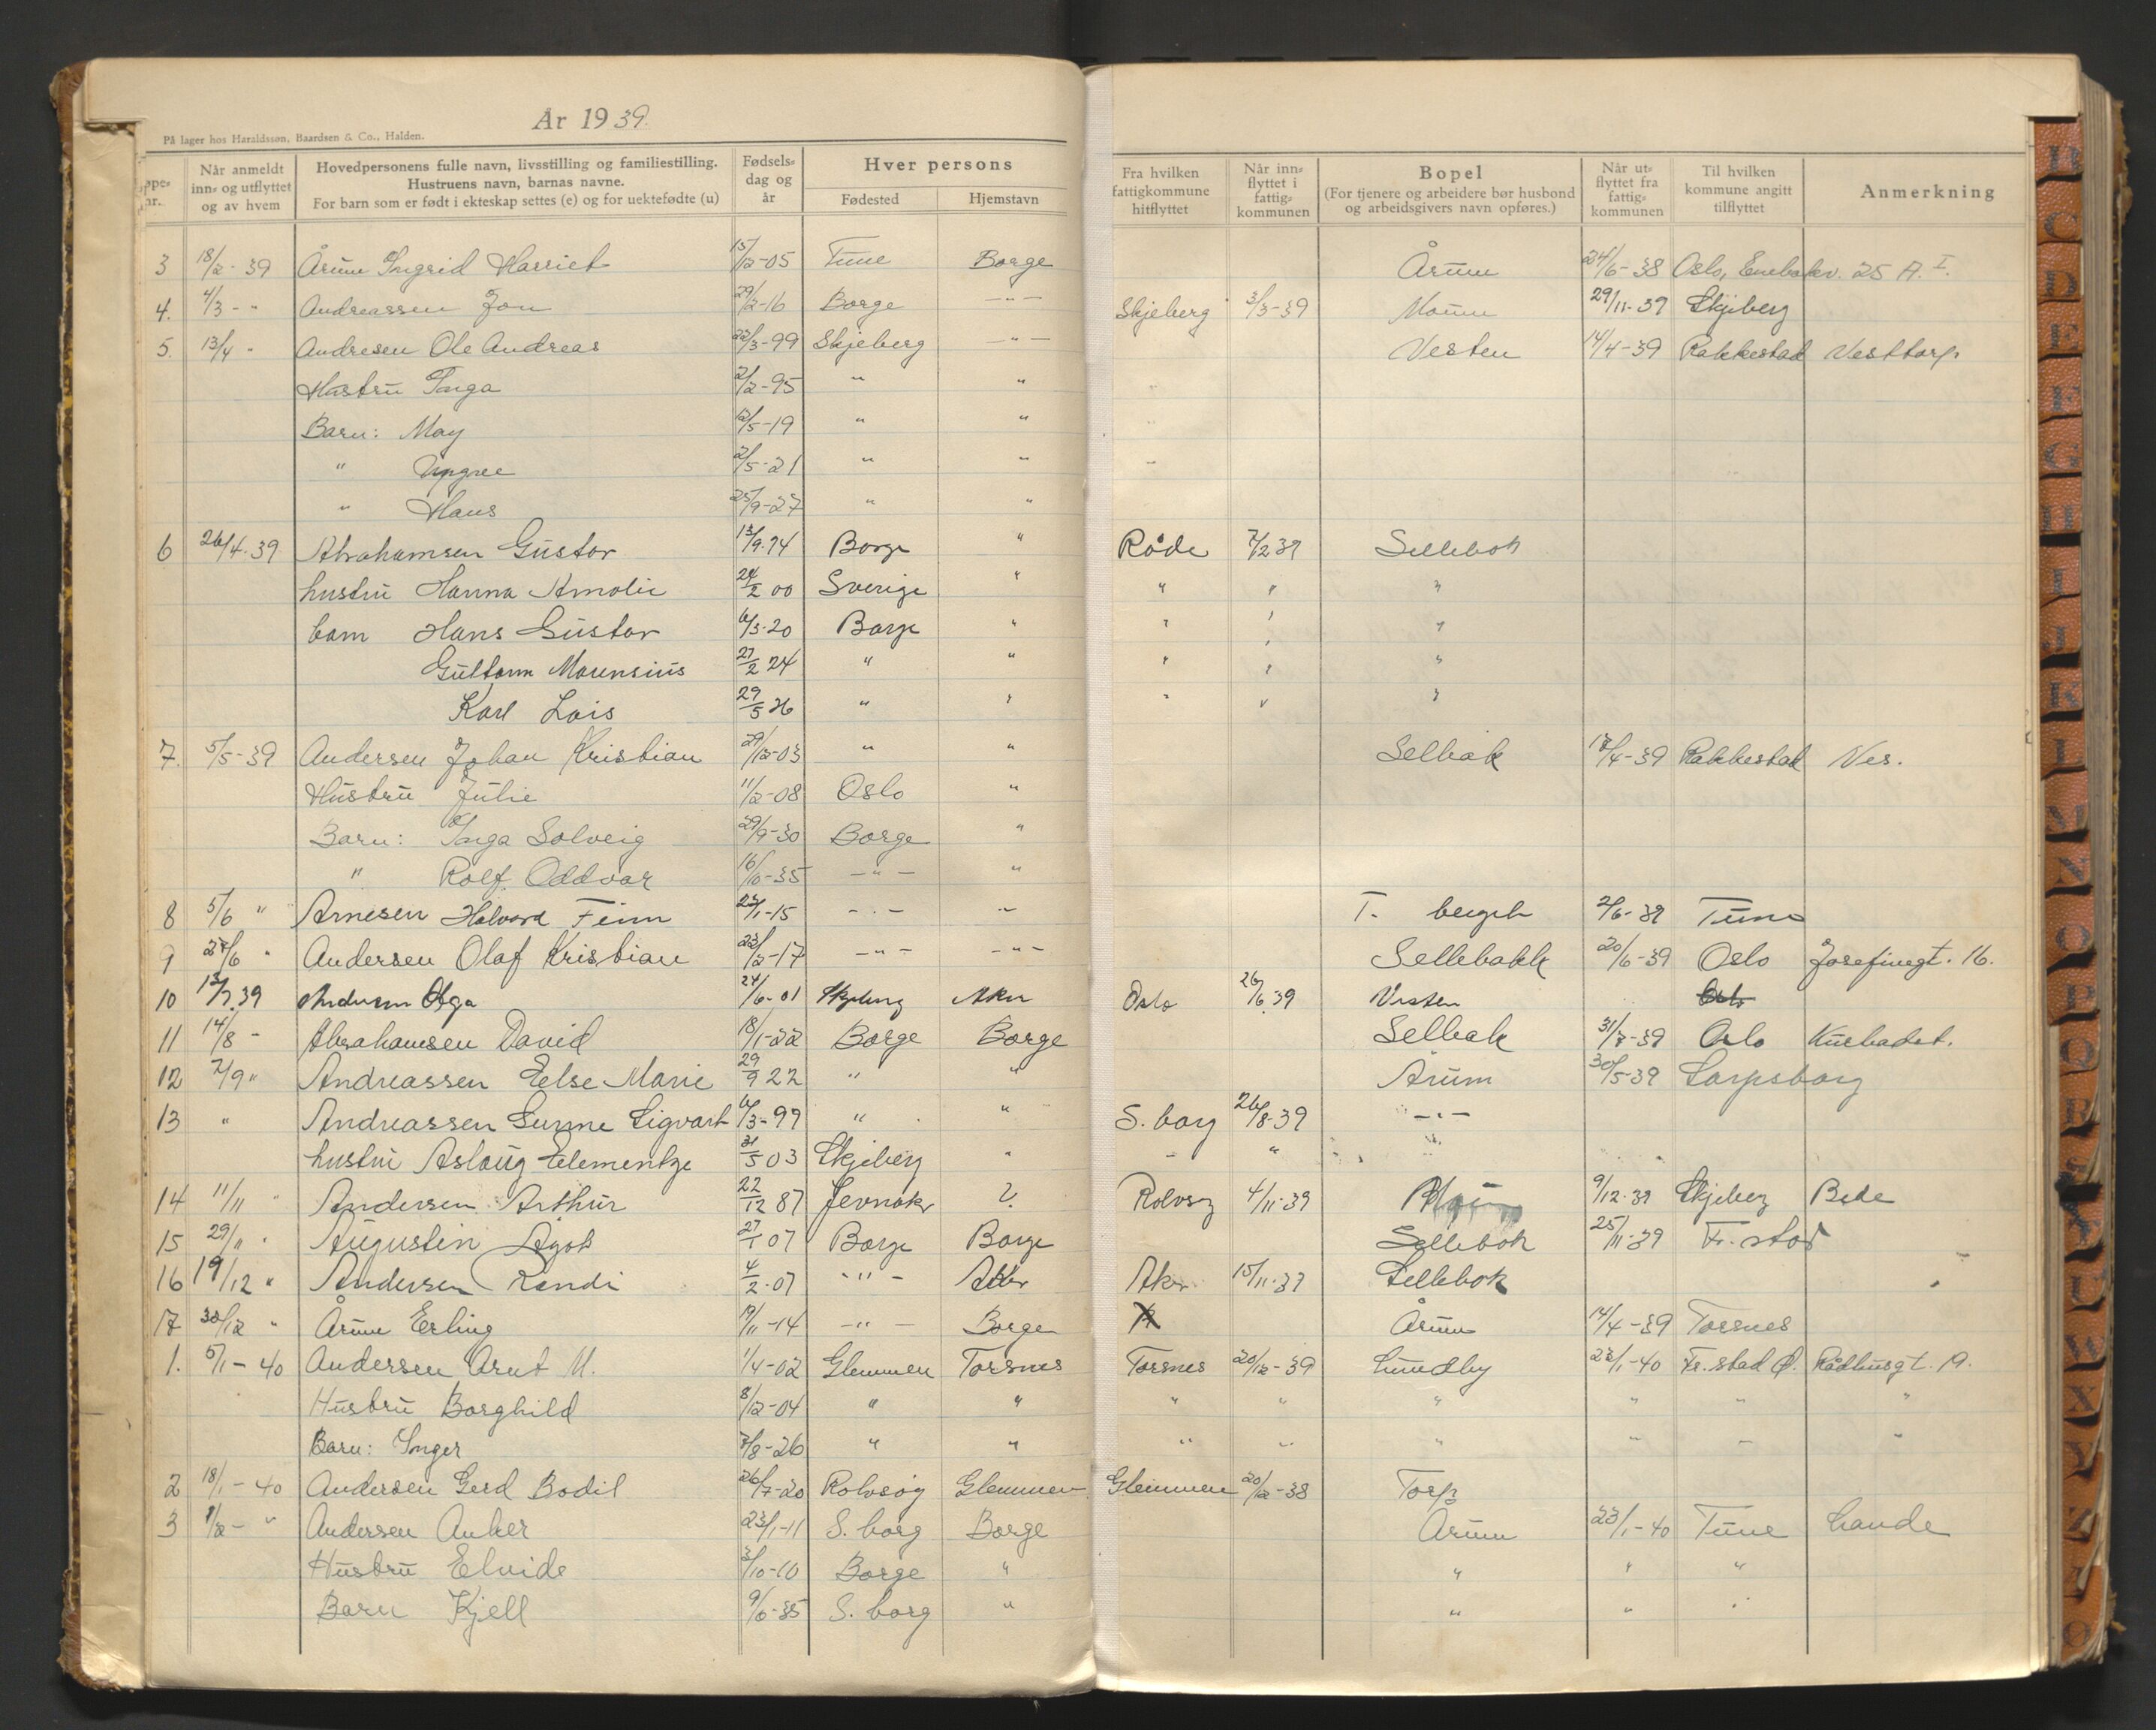 År 1939.
På lager hos Haraldssøn, Baardsen & Co., Halden.
Når anmeldt inn- og utflyttet og av hvem | Hovedpersonens fulle navn, livsstilling og familiestilling. Hustruens navn, barnas navne. For barn som er født i ekteskap settes (e) og for uektefødte (u) | Fødsels-dag og år | Hver persons Fødested | Hjemstavn | Fra hvilken fattigkommune hitflyttet | Når inn-flyttet i fattig-kommunen | Bopel (For tjenere og arbeidere bør husbond og arbeidsgivers navn opføres.) | Når ut-flyttet fra fattig-kommunen | Til hvilken kommune angitt tilflyttet | Anmerkning
3 18/2-39 Årum Ingrid Harriet 15/12-05 Tune Borge Årum 24/6-38 Oslo, Enebakv. 25 A. I.
4. 4/3-" Andreassen Jon 29/2-16 Borge -"- Skjeberg 3/3-39 Moum 29/11-39 Skjeberg
5. 13/4 " Andresen Ole Andreas 22/3-99 Skjeberg -"- Vesten 14/4-39 Rakkestad Vesttorp
Hustru Inga 2/2-95 " "
Barn: May 12/5-19 " "
" 2/5-21 " "
" Hans 25/9-27 " "
6 26/4-39 Abrahamsen Gustav 13/9-94 Borge " Råde 7/2 39 Sellebak
hustru Hanna Amalie 24/2 00 Sverige " " " "
barn Hans Gustav 6/3-20 Borge " " " "
Guttorm 27/2 24 " " " " "
Karl Lois 29/5 26 " " " " "
7. 5/5-39 Andersen Johan Kristian 29/12-03 " " Selbak 18/4-39 Rakkestad Nes.
Hustru Julie 11/2-08 Oslo "
Barn: Inga Solveig 29/9-30 Borge "
" Rolf Oddvar 16/10-35 -"- "
8 5/6 " Arnesen Halvard Finn 23/1-15 -"- -"- T. bergeh 2/6-39 Tune
9 27/6 " Andersen Olaf Kristian 23/2-17 -"- -"- Sellebakk 20/6-39 Oslo Josefinegt. 16.
10 13/7 39 Andersen Olga 24/6-01 Skjeberg Aker Oslo 26/6 39 Vesten Oslo
11 14/8 - Abrahamsen David 18/1-22 Borge Borge Selbak 31/7-39 Oslo Kurbadet.
12 2/9 " Andreassen Else Marie 29/9 22 " " Årum 30/5-39 Sarpsborg
13 " Andreassen Sigvart 6/3-99 " " S. borg 26/8-39 -"-
hustru Aslaug Elementze 31/5 03 Skjeberg " - " "
14 11/11 " Andersen Arthur 22/12 87 Jevnaker ? Rolvsøy 4/11-39 9/12-39 Skjeberg Bede
15 29/11 " Augustin Ågot 27/1 07 Borge Borge Sellebak 25/11-39 Fr. stad
16 19/12 " Andersen Randi 4/2-07 -"- Aker Aker 15/11-39 Sellebak
17 30/12 " Årum Erling 19/11-14 -"- Borge Årum 14/4-39 Torsnes
1. 5/1-40 Andersen Arnt M. 1/4-02 Glemmen Torsnes Torsnes 20/12-39 Lundby 23/1-40 Fr. stad Ø. Rådhusgt. 19.
Hustru Borghild 8/12-04 " " " " " " " "
Barn: Inger 7/8-26 " " " " " " " "
2 18/1-40 Andersen Gerd Bodil 26/7-20 Rolvsøy Glemmen Glemmen 20/12-38 Torp
3 1/2-" Andersen Anker 23/1-11 S. borg Borge Årum 23/1-40 Tune Lande
Hustru Elvide 3/10-10 Borge " " " "
Barn Kjell 9/6-35 S. borg " " " "